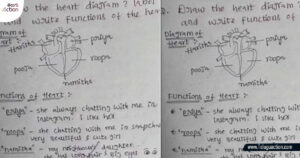 the heart diagram ? label
write functions of the hear
Diagram of
Heart :-
Haritha
priya
pooja
roopa
namitha
Functions of Heart :-
"priya" - she always chatting with me in
instagram. I like her
"roopa" - she chatting with me in snapchat
very beautiful & cute girl
"namitha" - my neighbour daughter.
2. Draw the heart diagram ? label
and write functions of the hear
Diagram of
Heart :-
Haritha
priya
pooja
roopa
namitha
Functions of Heart :-
"priya" - she always chatting with me in
instagram. I like her
"roopa" - she chatting with me in snapchat
very beautiful & cute girl
"namitha" - my neighbour daughter.